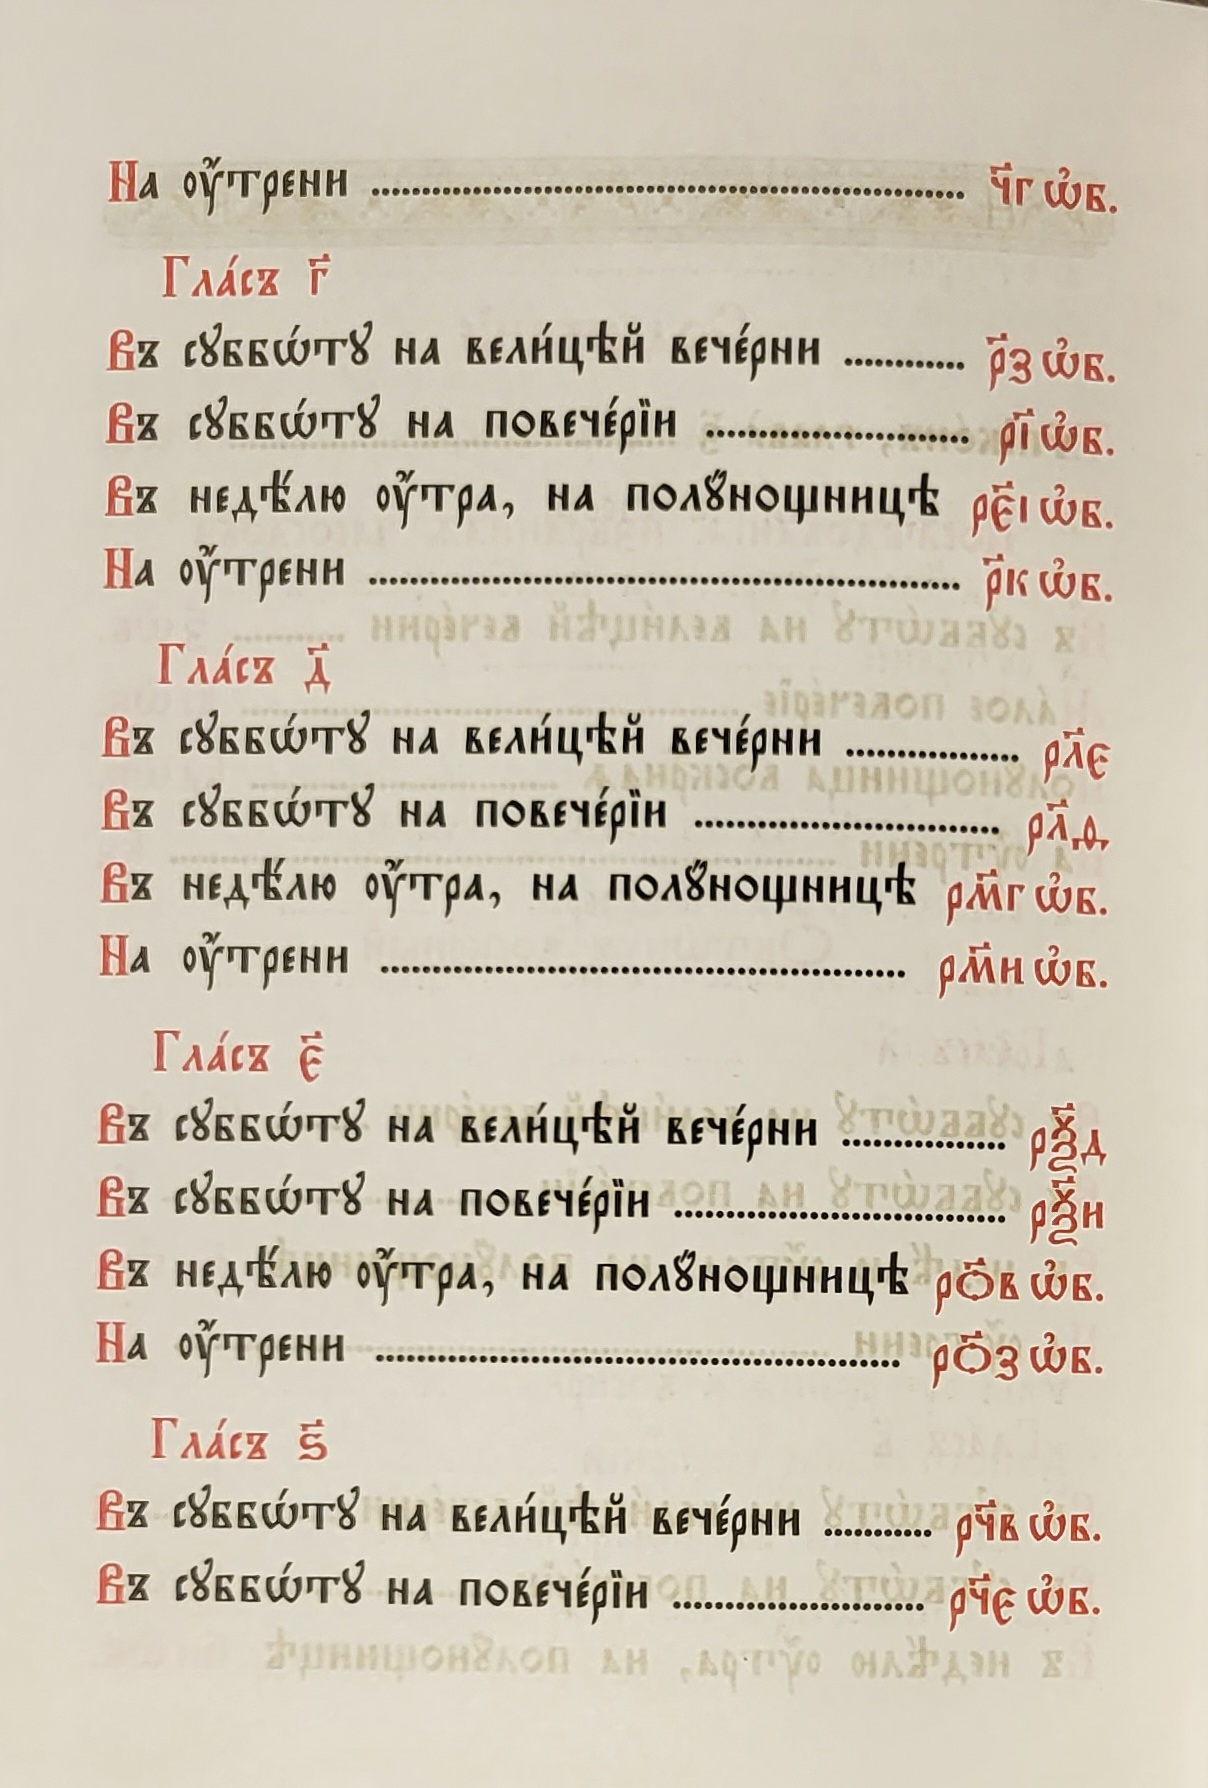 На ᲂу҆́трени ........ ч҃г ѡ҆б.
Гла́съ г҃
Въ сꙋббѡ́тꙋ на вели́цѣй вече́рни ........ р҃з ѡ҆б.
Въ сꙋббѡ́тꙋ на повече́рїи ........ рі҃ ѡ҆б.
Въ недѣ́лю ᲂу҆́тра, на полꙋ́нощницѣ рє҃і ѡ҆б.
На ᲂу҆́трени ........ р҃к ѡ҆б.
Гла́съ д҃
Въ сꙋббѡ́тꙋ на вели́цѣй вече́рни ........ рл҃є
Въ сꙋббѡ́тꙋ на повече́рїи ........ рл҃ѳ
Въ недѣ́лю ᲂу҆́тра, на полꙋ́нощницѣ рм҃г ѡ҆б.
На ᲂу҆́трени ........ рм҃н ѡ҆б.
Гла́съ є҃
Въ сꙋббѡ́тꙋ на вели́цѣй вече́рни ........ рѯ҃д
Въ сꙋббѡ́тꙋ на повече́рїи ........ рѯ҃н
Въ недѣ́лю ᲂу҆́тра, на полꙋ́нощницѣ ро҃в ѡ҆б.
На ᲂу҆́трени ........ ро҃з ѡ҆б.
Гла́съ ѕ҃
Въ сꙋббѡ́тꙋ на вели́цѣй вече́рни ........ рч҃в ѡ҆б.
Въ сꙋббѡ́тꙋ на повече́рїи ........ рч҃є ѡ҆б.